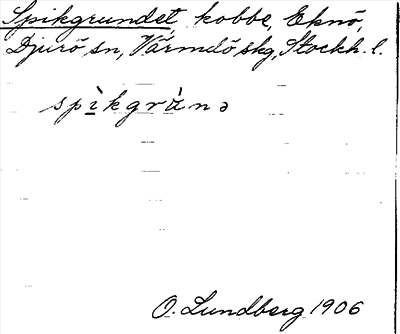 Spikgrundet, kobbe, Eknö,
Djurö sn, Värmdö skg, Stockh. l.
spìkgrànə
O. Lundberg 1906